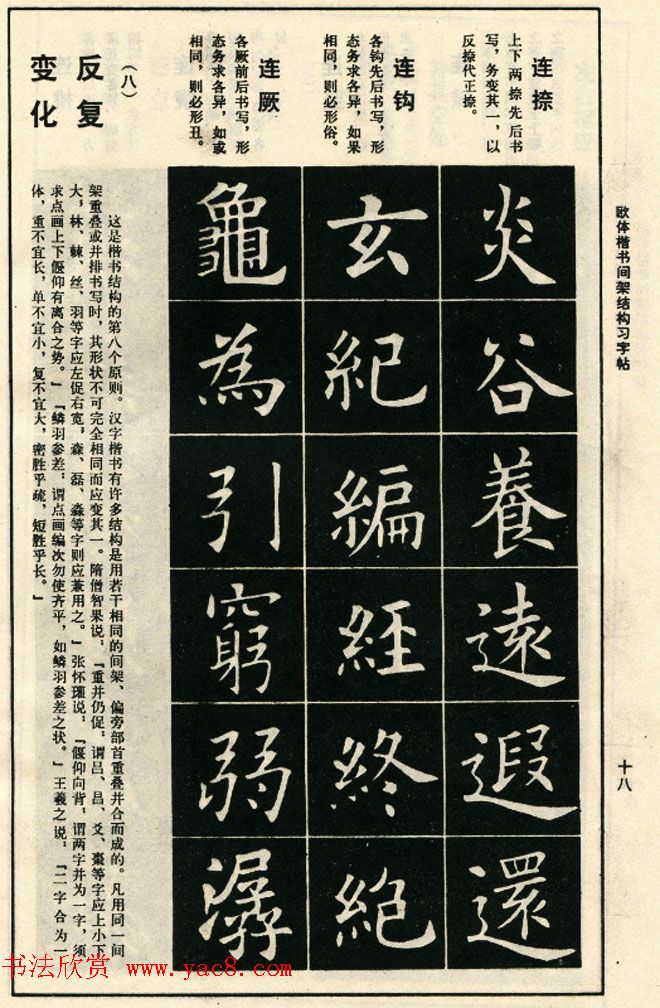 欧体楷书间架结构习字帖
十八
连捺
上下两捺先后书
写，务变其一，以
反捺代正捺。
炎谷養遠遐還
连钩
各钩先后书写，形
态务求各异，如果
相同，则必形俗。
玄紀編経終絶
连厥
各厥前后书写，形
态务求各异，如或
相同，则必形丑。
龜為引窮弱潺
（八）
反复
变化
这是楷书结构的第八个原则。汉字楷书有许多结构是用若干相同的间架、偏旁部首重叠并合而成的。凡用同一间
架重叠或并排书写时，其形状不可完全相同而应变其一。隋僧智果说，『重并仍促，谓吕、昌、爻、棗等字应上小下
大，林、棘、丝、羽等字应左促右宽，森、磊、淼等字则应兼用之。』张怀瓘说，『偃仰向背，谓两字并为一字，须
求点画上下偃仰有离合之势。』『鳞羽参差，谓点画编次勿使齐平，如鳞羽参差之状。』王羲之说，『二字合为一
体，重不宜长，单不宜小，复不宜大，密胜乎疏，短胜乎长。』
书法欣赏 www.yac8.com